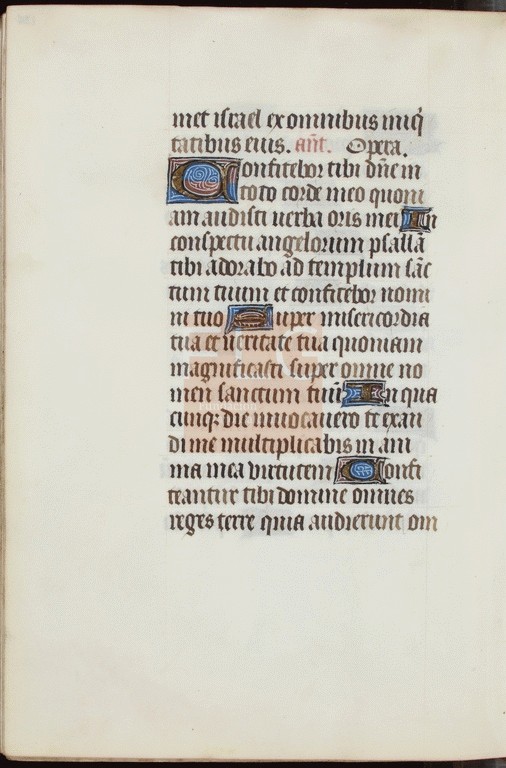 met israel ex omnibus iniq̃
tatibus eius. añt. Opera.
Confitebor tibi dñe in
toto corde meo quoni
am audisti uerba oris mei In
conspectu angelorum psallã
tibi adorabo ad templum sãc
tum tuum et confitebor nomi
ni tuo Super misericordia
tua et ueritate tua quoniam
magnificasti super omne no
men sanctum tuũ In qua
cunq; die inuocauero te exau
di me multiplicabis in ani
ma mea virtutem Confi
teantur tibi domine omnes
reges terre quia audierunt om